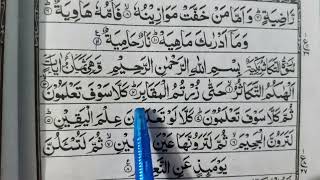 رَّاضِيَةٍ وَأَمَّا مَنْ خَفَّتْ مَوَازِينُهُ فَأُمُّهُ هَاوِيَةٌ
وَمَا أَدْرَىٰكَ مَا هِيَهْ نَارٌ حَامِيَةٌ
بِسْمِ اللّٰهِ الرَّحْمٰنِ الرَّحِيمِ
أَلْهٰىكُمُ التَّكَاثُرُ حَتّٰى زُرْتُمُ الْمَقَابِرَ كَلَّا سَوْفَ تَعْلَمُونَ
ثُمَّ كَلَّا سَوْفَ تَعْلَمُونَ كَلَّا لَوْ تَعْلَمُونَ عِلْمَ الْيَقِينِ
لَتَرَوُنَّ الْجَحِيمَ ثُمَّ لَتَرَوُنَّهَا عَيْنَ الْيَقِينِ ثُمَّ لَتُسْـَٔلُنَّ
يَوْمَئِذٍ عَنِ النَّعِيمِ